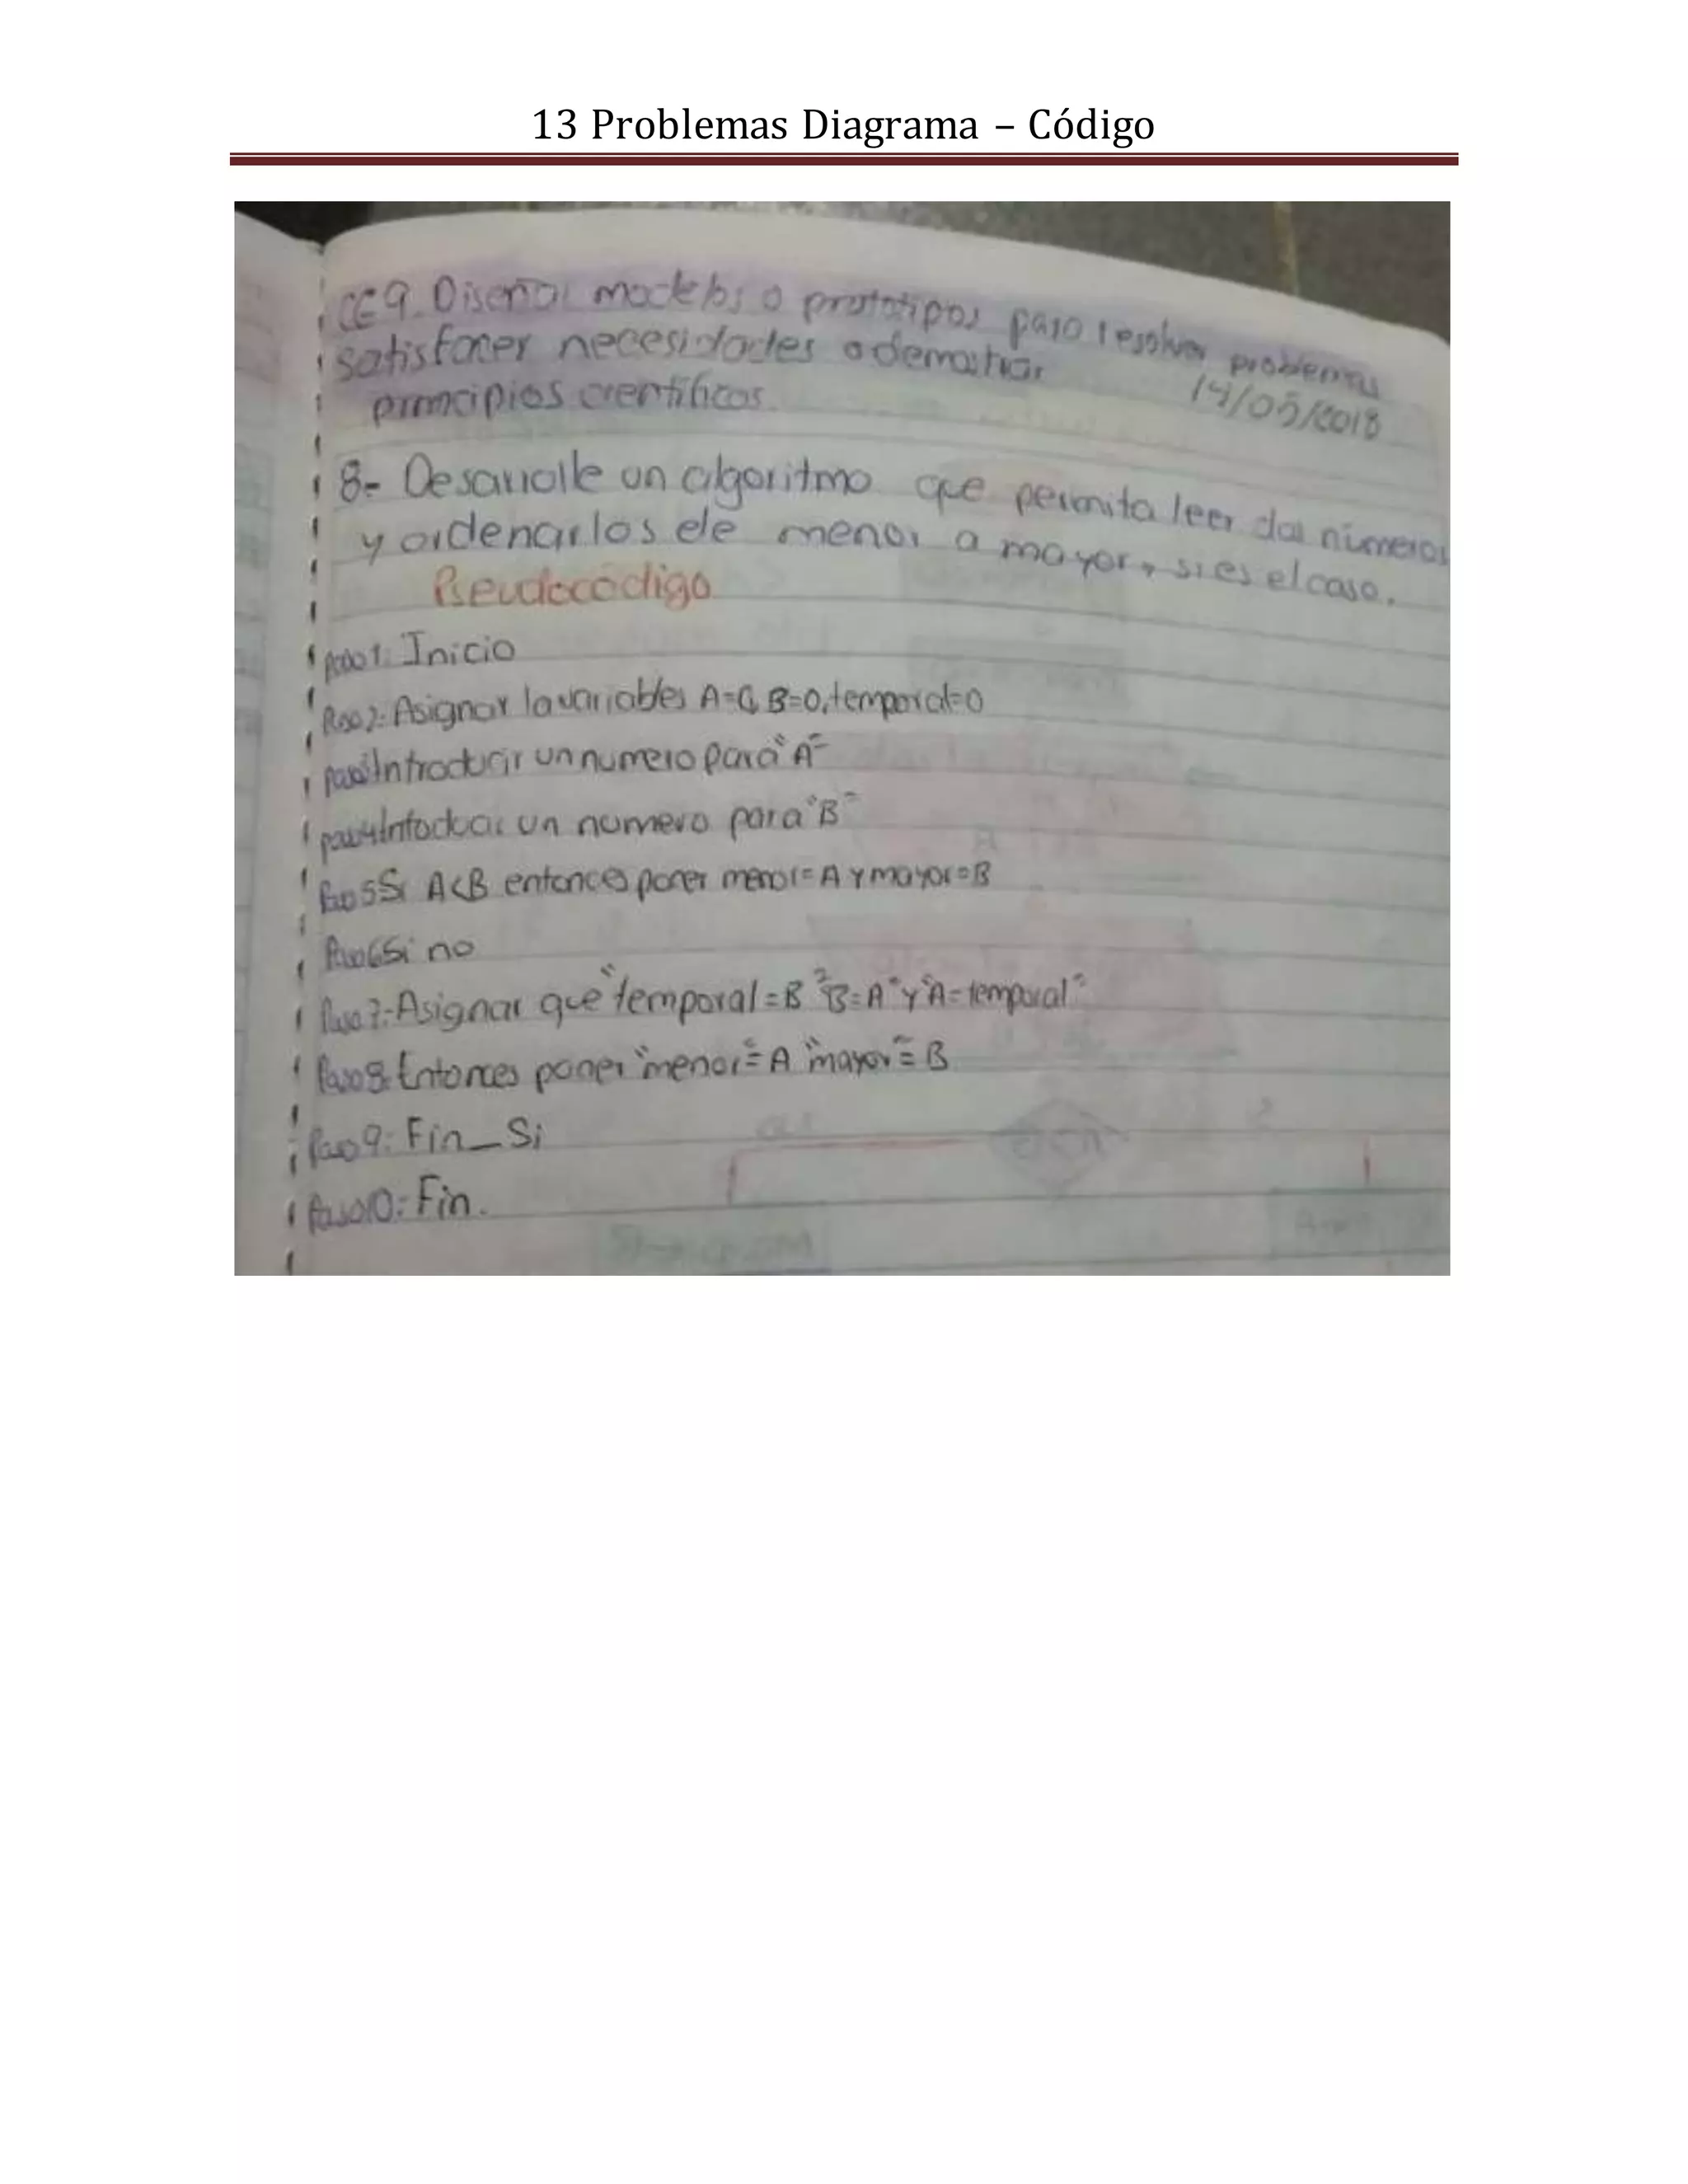 13 Problemas Diagrama – Código
CE9. Diseñar modelos o prototipos para resolver problemas
satisfacer necesidades o demostrar
principios científicos. 14/05/2018
8.- Desarrolle un algoritmo que permita leer dos números
y ordenarlos de menor a mayor, si es el caso.
Pseudocódigo
paso1: Inicio
Paso2: Asignar la variables A=0, B=0, temporal=0
paso3: Introducir un numero para "A"
paso4: Introducir un numero para "B"
Paso5 Si A<B entonces poner menor=A y mayor=B
Paso6 Si no
Paso7:-Asignar que "temporal=B" "B=A" y "A=temporal"
Paso8: Entonces poner "menor"=A "mayor"=B
Paso9: Fin_Si
Paso10: Fin.